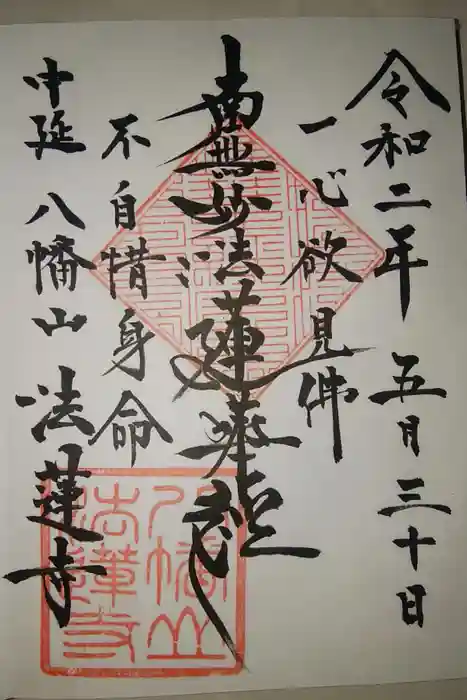 令和二年 五月三十日
一心欲見佛
南無妙法蓮華経
不自惜身命
中延 八幡山 法蓮寺
八幡山
法蓮寺